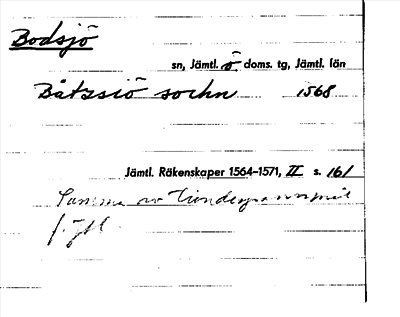 Bodsjö
sn, Jämtl. ö. doms. tg, Jämtl. län
Båtzsiö sochn 1568
Jämtl. Räkenskaper 1564–1571, II s. 161
Summa av